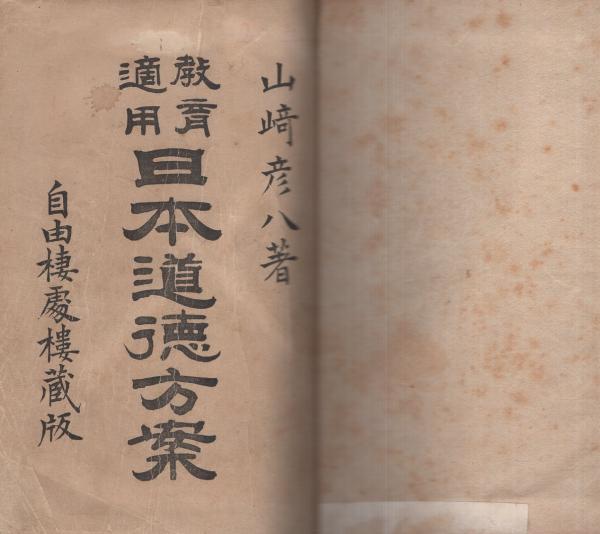 山﨑彦八著
教育
適用
日本道德方案
自由棲處樓藏版